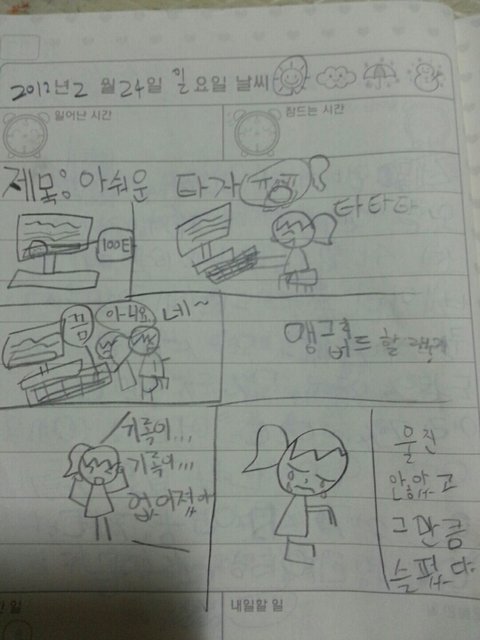 2012년 2월 24일 일요일 날씨
일어난 시간
잠드는 시간
제목: 아쉬운 타자
100E
타타타
끔
아니요
네~
앵그리
버드 할
기록이...
기록이...
없어졌어
울진
안았고
그만큼
슬펐다
한 일
내일할 일